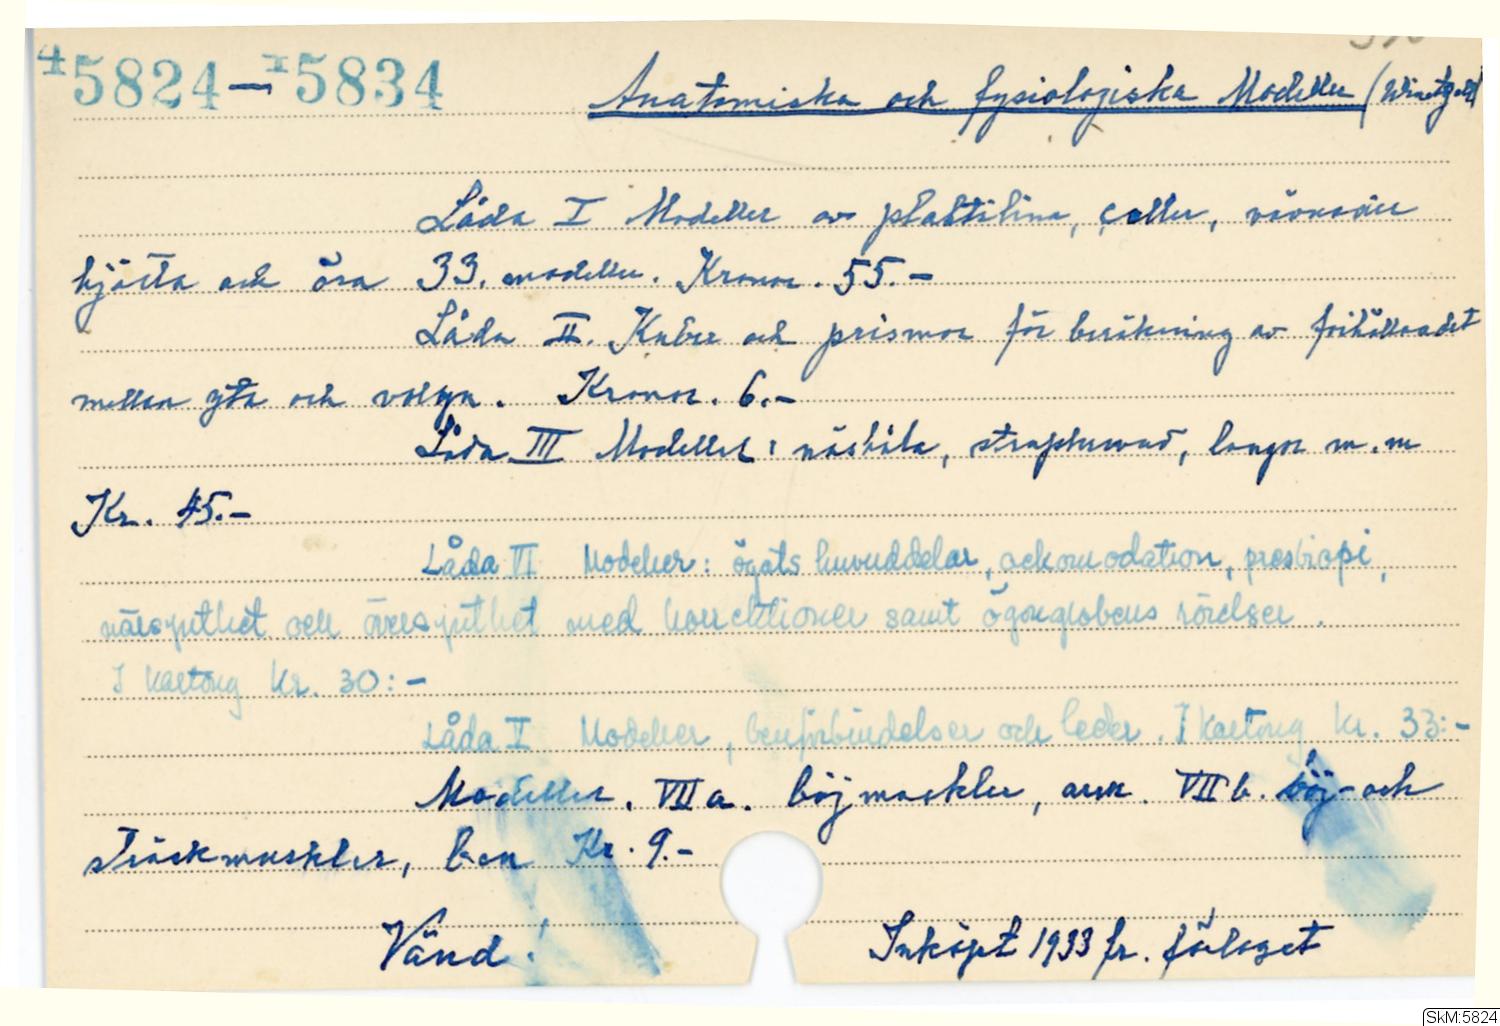 45824–I5834
Anatomiska och fysiologiska Modeller
Låda I Modeller av plastilina, celler, vävnader
hjärta och öra 33. modeller. Kronor. 55.–
Låda II. Kuber och prismor för beräkning av förhållandet
mellan yta och volym. Kronor. 6.–
Låda III Modeller: näshåla, struphuvud, lungor m.m
Kr. 45.–
Låda VI Modeller: ögats huvuddelar, ackomodation, presbiopi,
närsynthet och översynthet med korrektioner samt ögonglobens rörelser.
I kartong Kr. 30:–
Låda V Modeller, benförbindelser och leder. I kartong Kr. 33:–
Modeller. VII a. böjmuskler, arm. VII b. böj- och
sträckmuskler, ben Kr. 9.–
Vänd!
Inköpt 1933 fr. förlaget
SkM:5824